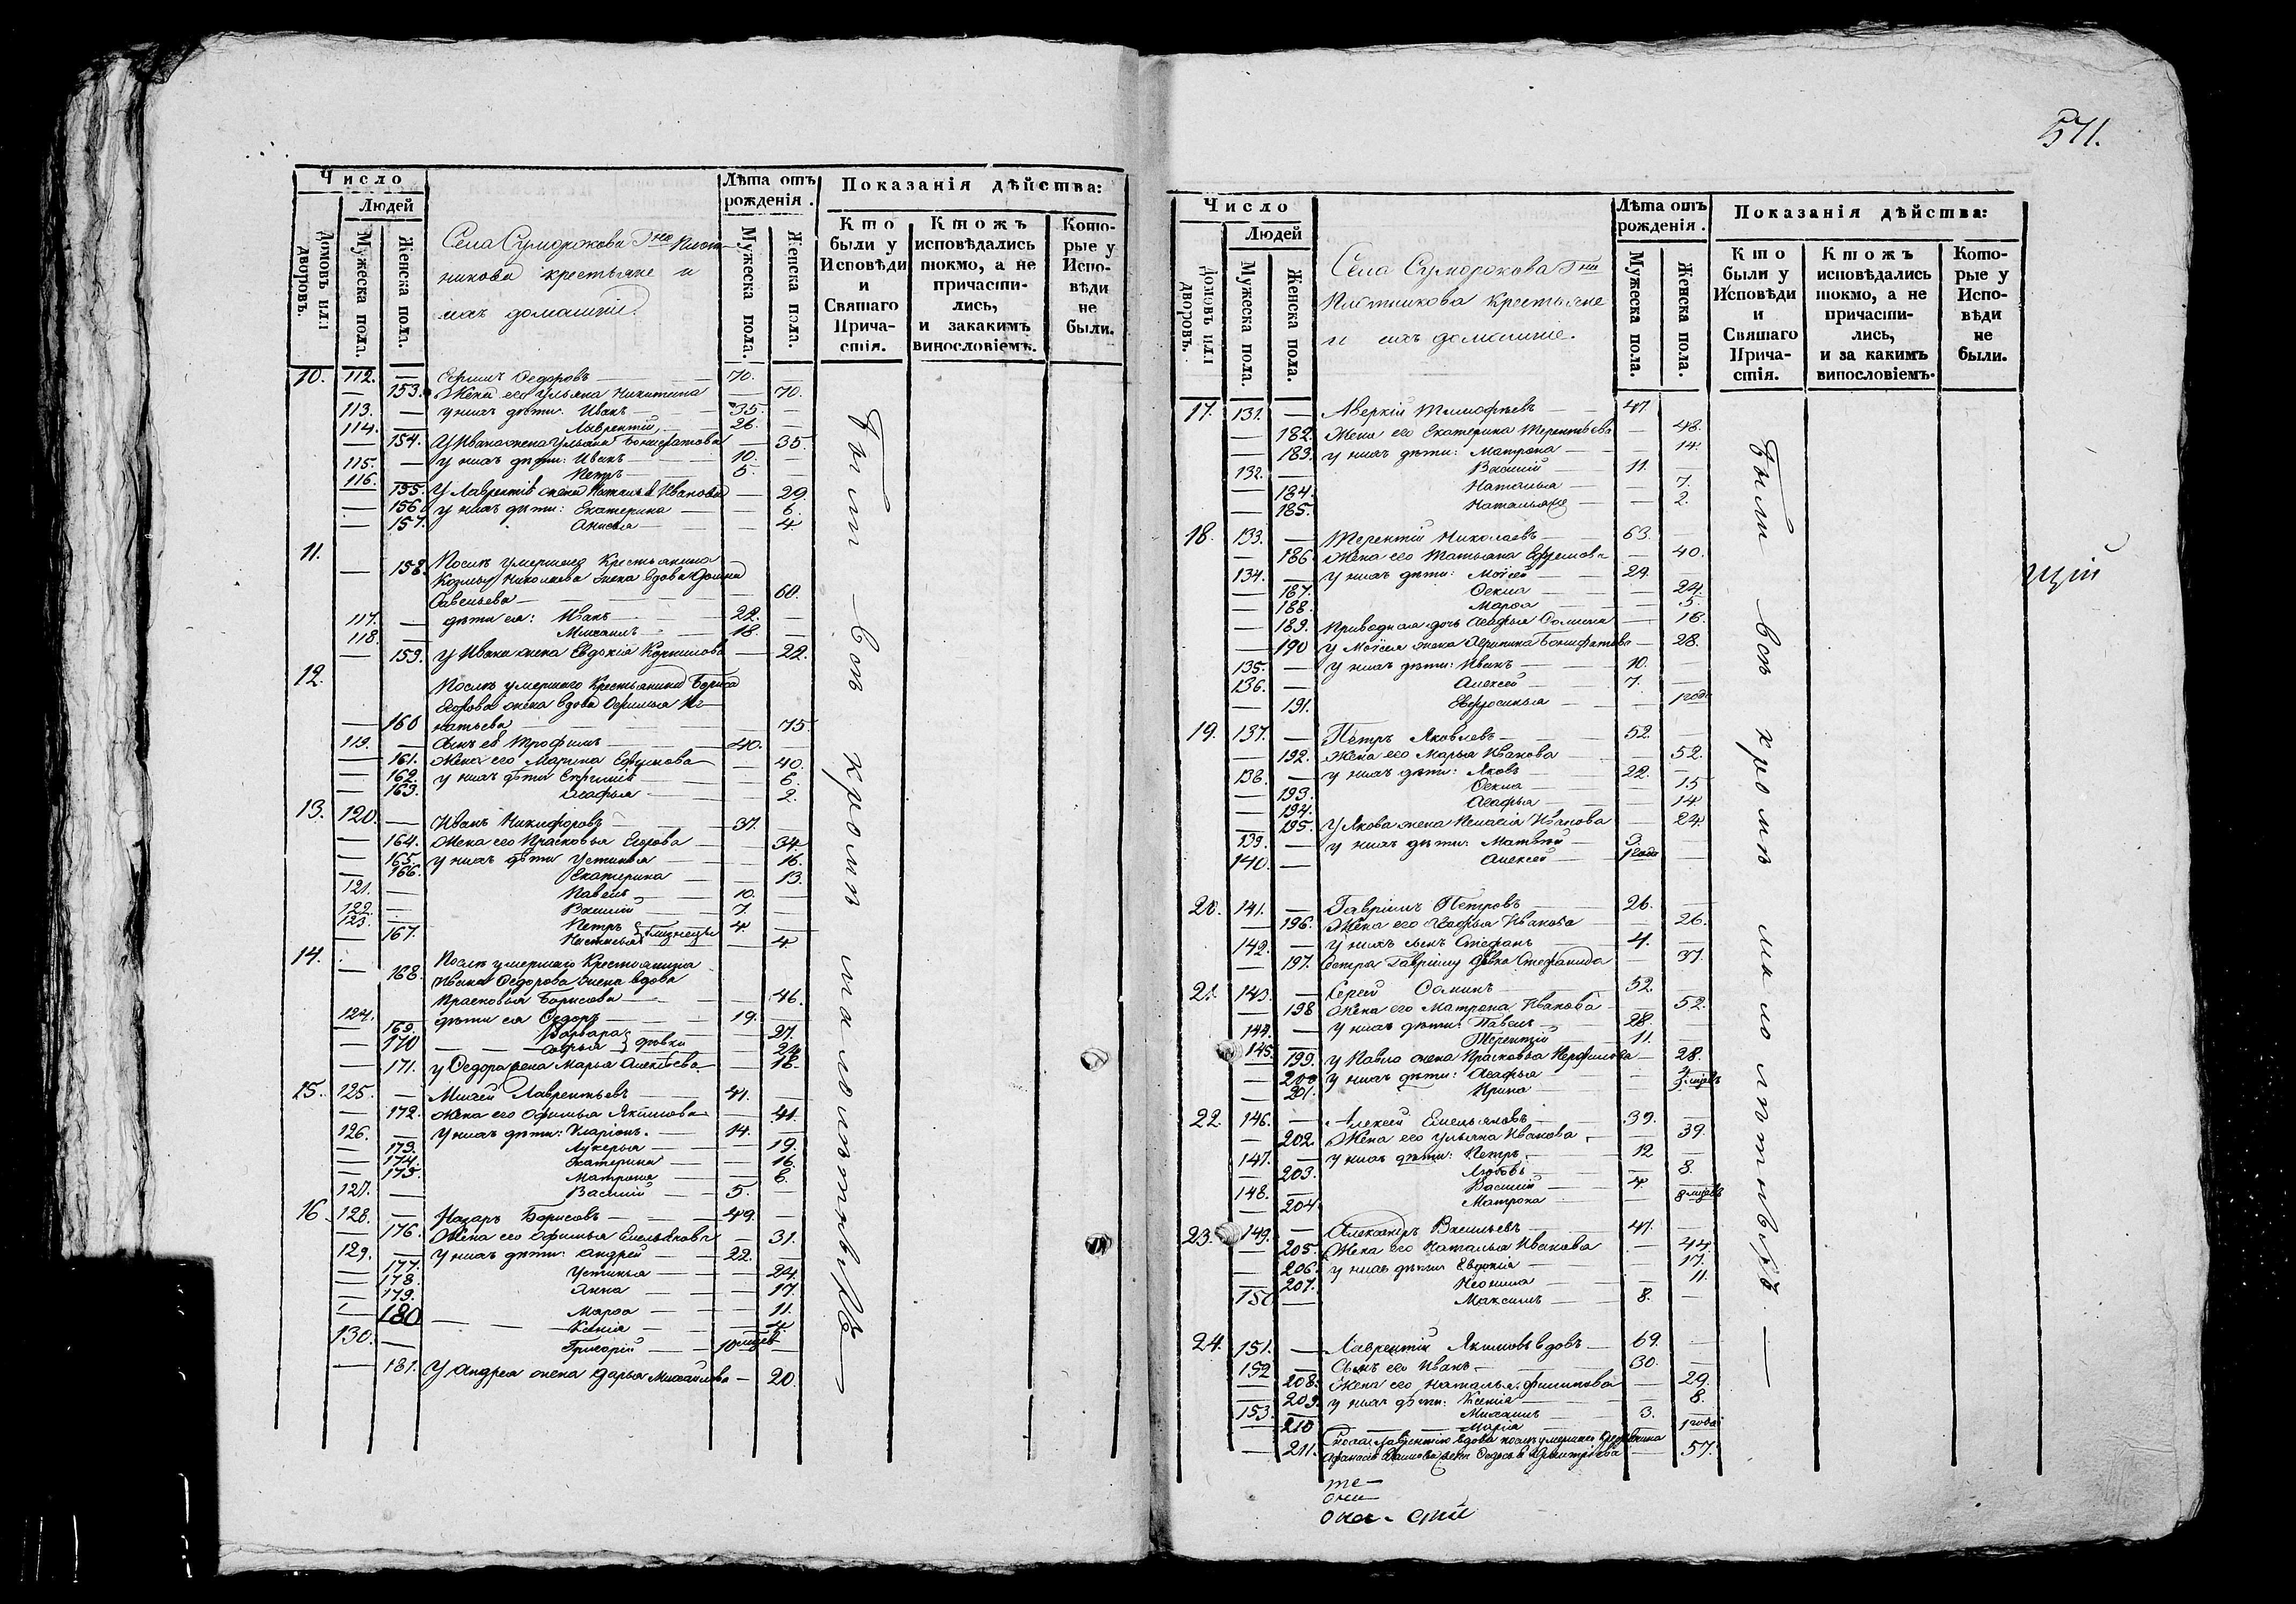 571.
Число
Людей
Домовъ или дворовъ.
Мужеска пола.
Женска пола.
Села Сумарокова Гна Плот-
никова крестьяне и
ихъ домашніи.
Лѣта отъ рожденія.
Мужеска пола.
Женска пола.
Показанія дѣйства:
Кто были у Исповѣди и Святаго Прича-стія.
Ктожъ исповѣдались токмо, а не причасти-лись, и закакимъ винословіемъ.
Кото-рые у Испо-вѣди не были.
10. 112. — Ѳедоровъ — 70. —
— 153. Жена его Ульяна Никитина — 70.
113. — у нихъ дѣти: Иванъ — 35. —
114. — Лаврентій — 26. —
— 154. У Ивана жена Ульяна — 35.
115. — у нихъ дѣти: Иванъ — 10. —
116. — Петръ — 5. —
— 155. У Лаврентія жена Наталья Иванова — 29.
— 156. у нихъ дѣти: Екатерина — 6.
— 157. Анисья — 4.
11. — 158. Послѣ умершаго Крестьянина
Козмы Николаева жена вдова
Савельева — 60.
117. — дѣти ея: Иванъ — 22. —
118. — Михаилъ — 18. —
— 159. у Ивана жена Евдокія — 22.
12. Послѣ умершаго Крестьянина Бориса
жена вдова Иг-
— 160 натьева — 75.
119. — Сынъ её Трофимъ — 40. —
— 161. Жена его Марина — 40.
— 162. у нихъ дѣти — 6.
— 163. Агафья — 2.
13. 120. — Иванъ Никифоровъ — 37. —
— 164. Жена его Прасковья Егорова — 34.
— 165. у нихъ дѣти Устинья — 16.
— 166. Екатерина — 13.
121. — Павелъ — 10. —
122. — Василій — 7. —
123. — Петръ } близнецы — 4. —
— 167. Настасья — 4.
14. — 168. Послѣ умершаго Крестьянина
Ивана Ѳедорова жена вдова
Прасковья Борисова — 46.
124. — дѣти ея Ѳедоръ — 19. —
— 169. Варвара } дѣвки — 27.
— 170 Софья — 24.
— 171. у Ѳедора жена Марья Алексѣева — 18.
15. 125. — Лаврентьевъ — 41. —
— 172. Жена его Офимья Якимова — 41.
126. — у нихъ дѣти: Иларіонъ. — 14. —
— 173. Лукерья — 19.
— 174. Екатерина — 16.
— 175. Матрона — 6.
127. — Василій — 5. —
16. 128. — Назаръ Борисовъ — 49. —
— 176. Жена его Офимья Емельянова — 31.
129. — у нихъ дѣти: Андрей — 22. —
— 177. Устинья — 24.
— 178. Анна — 17.
— 179. Марѳа — 11.
— 180 Ксенія — 4.
130. — Григорій — 10 мцев —
— 181. У Андрея жена Дарья Михайлова — 20.
Были — всѣ кромѣ малолѣтнѣхъ —
Число
Людей
Домовъ или дворовъ.
Мужеска пола.
Женска пола.
Села Сумарокова Гна
Плотникова крестьяне
и ихъ домашніе.
Лѣта отъ рожденія.
Мужеска пола.
Женска пола.
Показанія дѣйства:
Кто были у Исповѣди и Святаго Прича-стія.
Ктожъ исповѣдались токмо, а не причасти-лись, и за какимъ винословіемъ.
Кото-рые у Испо-вѣди не были.
17. 131. — Аверкій Тимофѣевъ — 47.
— 182. Жена его Екатерина Терентьева — 48.
— 183. у нихъ дѣти: Матрона — 14.
132. — Василій — 11. —
— 184. Наталья — 7.
— 185. — 2.
18. 133. — Терентій Николаевъ — 63. —
— 186. Жена его Татьяна Ефремова — 40.
134. — у нихъ дѣти: Моѵсей — 29. —
— 187. Ѳекла — 24.
— 188. Марѳа — 5.
— 189. Приводная дочь Агафья — 16.
— 190 у Моѵсея жена — 28.
135. — у нихъ дѣти: Иванъ — 10. —
136. — Алексей — 7. —
— 191. Евфросинья — 1 года
19. 137. — Петръ Яковлевъ — 52. —
— 192. Жена его Марья Иванова — 52.
138. — у нихъ дѣти: Яковъ — 22. —
— 193. Ѳекла — 15
— 194. Агафья — 14
— 195. У Якова жена Пелагія Иванова — 24.
139. — у нихъ дѣти: Матвѣй — 3. —
140. — Алексей — 1 года —
20. 141. — Гавріилъ Петровъ — 26. —
— 196. Жена его Агафья Иванова — 26.
142. — у нихъ сынъ Стефанъ — 4. —
— 197. Сестра Гавріилу дѣвка Стефанида — 37.
21. 143. — Сергей Ѳоминъ — 52. —
— 198 Жена его Матрона Иванова — 52.
144. — у нихъ дѣти: Павелъ — 28. —
145. — Терентій — 11. —
— 199. у Павла жена Прасковья — 28.
— 200 у нихъ дѣти: Агафья —
— 201. Ирина —
22. 146. — Алексей Емельяновъ — 39. —
— 202. Жена его Ульяна Иванова — 39.
147. — у нихъ дѣти: Петръ — 12 —
— 203. Любовь — 8.
148. — Василій — 4. —
— 204. Матрона — 8 мцевъ
23. 149. — Александръ Васильевъ — 47. —
— 205. Жена его Наталья Иванова — 44.
— 206. у нихъ дѣти Евдокія — 17.
— 207. — 11.
150 — Максимъ — 8. —
24. 151. — Лаврентій Якимовъ вдовъ — 69. —
152 — Сынъ его Иванъ — 30. —
— 208. Жена его Наталья Филипова — 29.
— 209. у нихъ дѣти: Ксенія — 8.
153. — Михаилъ — 3. —
— 210 Марія — 1 года
Лаврентію вдова послѣ умершаго Крестьянина
— 211. жена — 57.
Были — всѣ кромѣ малолѣтнѣхъ —
щій
те —
они —
она - стіи